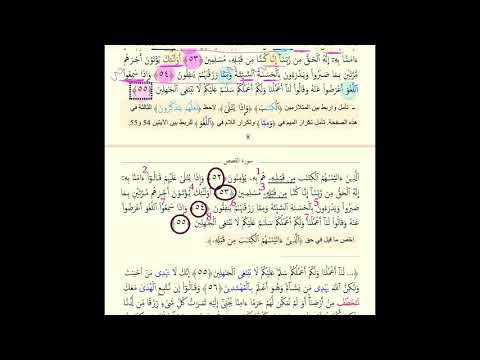 ءَامَنَّا بِهِۦٓ إِنَّهُ ٱلْحَقُّ مِن رَّبِّنَآ إِنَّا كُنَّا مِن قَبْلِهِۦ مُسْلِمِينَ ﴿٥٣﴾ أُو۟لَٰٓئِكَ يُؤْتَوْنَ أَجْرَهُم
مَّرَّتَيْنِ بِمَا صَبَرُوا۟ وَيَدْرَءُونَ بِٱلْحَسَنَةِ ٱلسَّيِّئَةَ وَمِمَّا رَزَقْنَٰهُمْ يُنفِقُونَ ﴿٥٤﴾ وَإِذَا سَمِعُوا۟
ٱللَّغْوَ أَعْرَضُوا۟ عَنْهُ وَقَالُوا۟ لَنَآ أَعْمَٰلُنَا وَلَكُمْ أَعْمَٰلُكُمْ سَلَٰمٌ عَلَيْكُمْ لَا نَبْتَغِى ٱلْجَٰهِلِينَ ﴿٥٥﴾
ـ تأمل واربط بين المتلازمين ﴿ٱلْكِتَٰبَ﴾ ﴿وَإِذَا يُتْلَىٰ﴾. لاحظ ﴿لَعَلَّهُمْ يَتَذَكَّرُونَ﴾ الثالثة في
هذه الصفحة. تأمل تكرار الميم في ﴿وَمِمَّا﴾ وتكرار اللام في ﴿ٱللَّغْوَ﴾ للربط بين الآيتين 54 و55.
8
سورة القصص
ٱلَّذِينَ ءَاتَيْنَٰهُمُ ٱلْكِتَٰبَ مِن قَبْلِهِۦ هُم بِهِۦ يُؤْمِنُونَ ﴿٥٢﴾ وَإِذَا يُتْلَىٰ عَلَيْهِمْ قَالُوٓا۟ ءَامَنَّا بِهِۦٓ 2
إِنَّهُ ٱلْحَقُّ مِن رَّبِّنَآ إِنَّا كُنَّا مِن قَبْلِهِۦ مُسْلِمِينَ 3 ﴿٥٣﴾ أُو۟لَٰٓئِكَ 4 يُؤْتَوْنَ أَجْرَهُم مَّرَّتَيْنِ بِمَا
صَبَرُوا۟ وَيَدْرَءُونَ 5 بِٱلْحَسَنَةِ ٱلسَّيِّئَةَ وَمِمَّا 6 رَزَقْنَٰهُمْ يُنفِقُونَ ﴿٥٤﴾ وَإِذَا سَمِعُوا۟ 7 ٱللَّغْوَ أَعْرَضُوا۟
عَنْهُ وَقَالُوا۟ لَنَآ أَعْمَٰلُنَا وَلَكُمْ أَعْمَٰلُكُمْ سَلَٰمٌ عَلَيْكُمْ لَا نَبْتَغِى 8 ٱلْجَٰهِلِينَ ﴿٥٥﴾
ما قيل في حق ﴿ٱلَّذِينَ ءَاتَيْنَٰهُمُ ٱلْكِتَٰبَ مِن قَبْلِهِۦ﴾.
﴿... لَنَآ أَعْمَٰلُنَا وَلَكُمْ أَعْمَٰلُكُمْ سَلَٰمٌ عَلَيْكُمْ لَا نَبْتَغِى ٱلْجَٰهِلِينَ ﴿٥٥﴾ إِنَّكَ لَا تَهْدِى مَنْ أَحْبَبْتَ
وَلَٰكِنَّ ٱللَّهَ يَهْدِى مَن يَشَآءُ وَهُوَ أَعْلَمُ بِٱلْمُهْتَدِينَ ﴿٥٦﴾ وَقَالُوٓا۟ إِن نَّتَّبِعِ ٱلْهُدَىٰ مَعَكَ
نُتَخَطَّفْ مِنْ أَرْضِنَآ أَوَلَمْ نُمَكِّن لَّهُمْ حَرَمًا ءَامِنًا يُجْبَىٰٓ إِلَيْهِ ثَمَرَٰتُ كُلِّ شَىْءٍ رِّزْقًا مِّن لَّدُنَّا